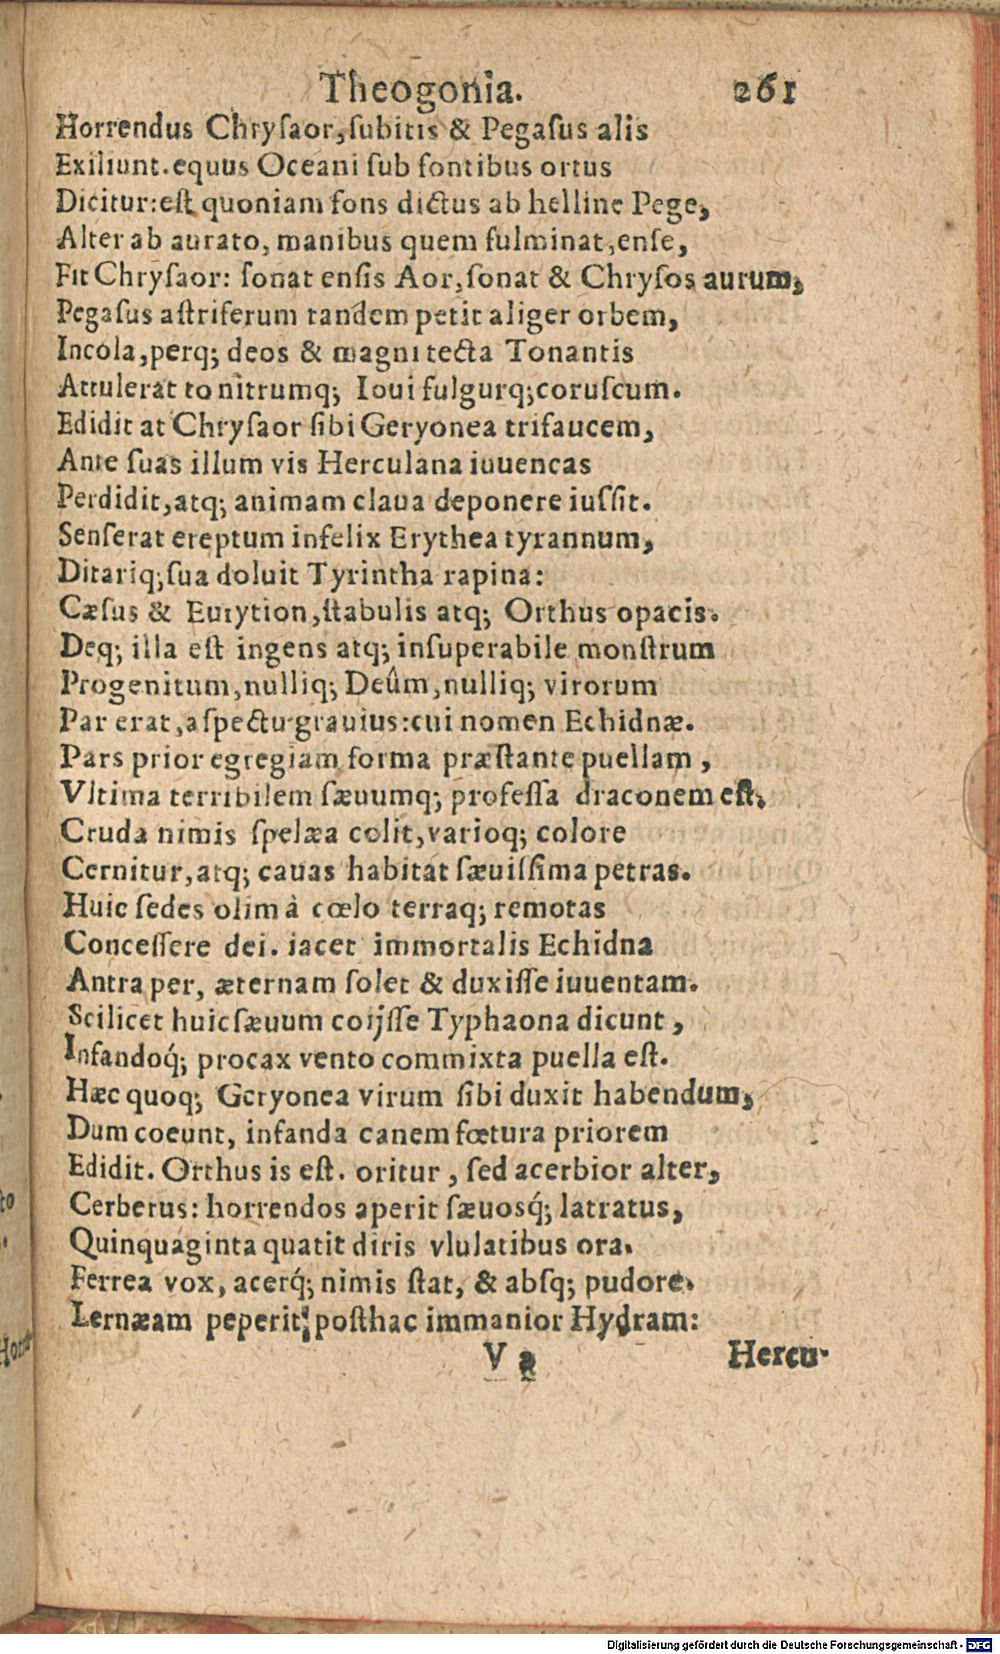 Theogonia. 261
Horrendus Chryſaor, ſubitis & Pegaſus alis
Exiliunt. equus Oceani ſub fontibus ortus
Dicitur: eſt quoniam fons dictus ab helline Pege,
Alter ab aurato, manibus quem fulminat, enſe,
Fit Chryſaor: ſonat enſis Aor, ſonat & Chryſos aurum,
Pegaſus aſtriferum tandem petit aliger orbem,
Incola, perq; deos & magni tecta Tonantis
Attulerat tonitrumq; Ioui fulgurq; coruſcum.
Edidit at Chryſaor ſibi Geryonea trifaucem,
Ante ſuas illum vis Herculana iuuencas
Perdidit, atq; animam claua deponere iuſſit.
Senſerat ereptum infelix Erythea tyrannum,
Ditariq; ſua doluit Tyrintha rapina:
Cæſus & Eurytion, ſtabulis atq; Orthus opacis.
Deq; illa eſt ingens atq; inſuperabile monſtrum
Progenitum, nulliq; Deûm, nulliq; virorum
Par erat, aſpectu grauius: cui nomen Echidnæ.
Pars prior egregiam forma præſtante puellam,
Vltima terribilem ſæuumq; profeſſa draconem eſt,
Cruda nimis ſpelæa colit, varioq; colore
Cernitur, atq; cauas habitat ſæuiſſima petras.
Huic ſedes olim à cœlo terraq; remotas
Conceſſere dei. iacet immortalis Echidna
Antra per, æternam ſolet & duxiſſe iuuentam.
Scilicet huic ſæuum coijſſe Typhaona dicunt,
Infandoq́; procax vento commixta puella eſt.
Hæc quoq; Geryonea virum ſibi duxit habendum,
Dum coeunt, infanda canem fœtura priorem
Edidit. Orthus is eſt. oritur, ſed acerbior alter,
Cerberus: horrendos aperit ſæuosq́; latratus,
Quinquaginta quatit diris vlulatibus ora.
Ferrea vox, acerq́; nimis ſtat, & absq; pudore.
Lernæam peperit; poſthac immanior Hydram:
V 3 Hercu-
Digitalisierung gefördert durch die Deutsche Forschungsgemeinschaft - DFG